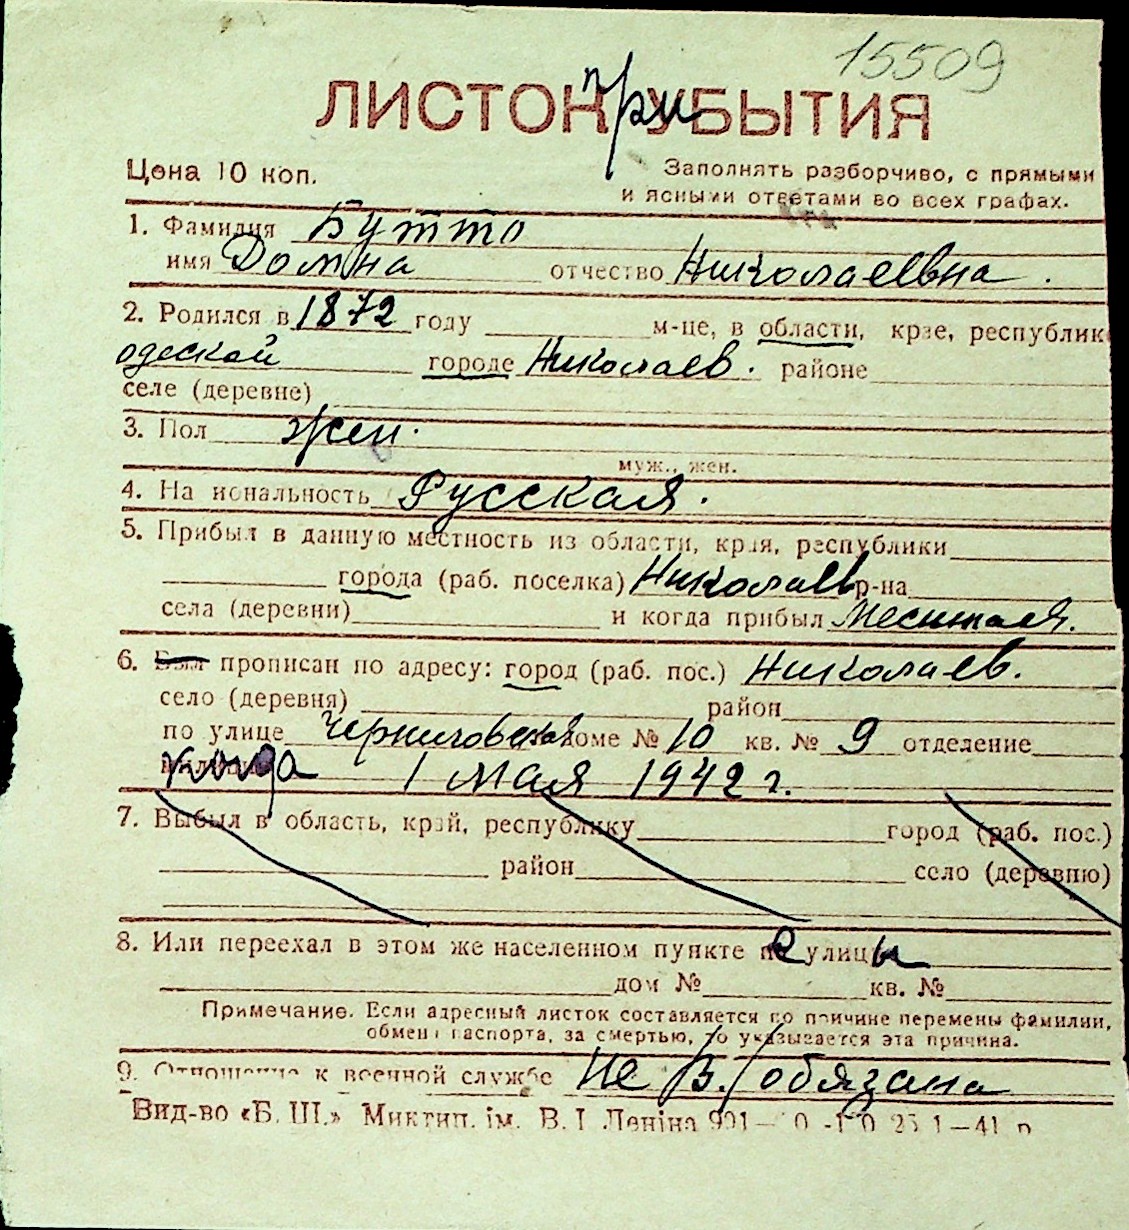 15509
ЛИСТОК при УБЫТИЯ
Цена 10 коп.
Заполнять разборчиво, с прямыми
и ясными ответами во всех графах.
1. Фамилия Бутто
имя Домна отчество Николаевна.
2. Родился в 1872 году м-це, в области, крае, республике
одеской городе Николаев. районе
селе (деревне)
3. Пол жен.
муж., жен.
4. Национальность Русская.
5. Прибыл в данную местность из области, края, республики
города (раб. поселка) Николаев р-на
села (деревни) и когда прибыл Месиная.
6. Был прописан по адресу: город (раб. пос.) Николаев.
село (деревня) район
по улице Черниговская доме № 10 кв. № 9 отделение
когда 1 мая 1942 г.
7. Выбыл в область, край, республику город (раб. пос.)
район село (деревню)
8. Или переехал в этом же населенном пункте с улицы
дом № кв. №
Примечание. Если адресный листок составляется по причине перемены фамилии,
обмена паспорта, за смертью, то указывается эта причина.
9. Отношение к военной службе не в/обязана
Вид-во «Б. Ш.» Миктип. ім. В. І Леніна